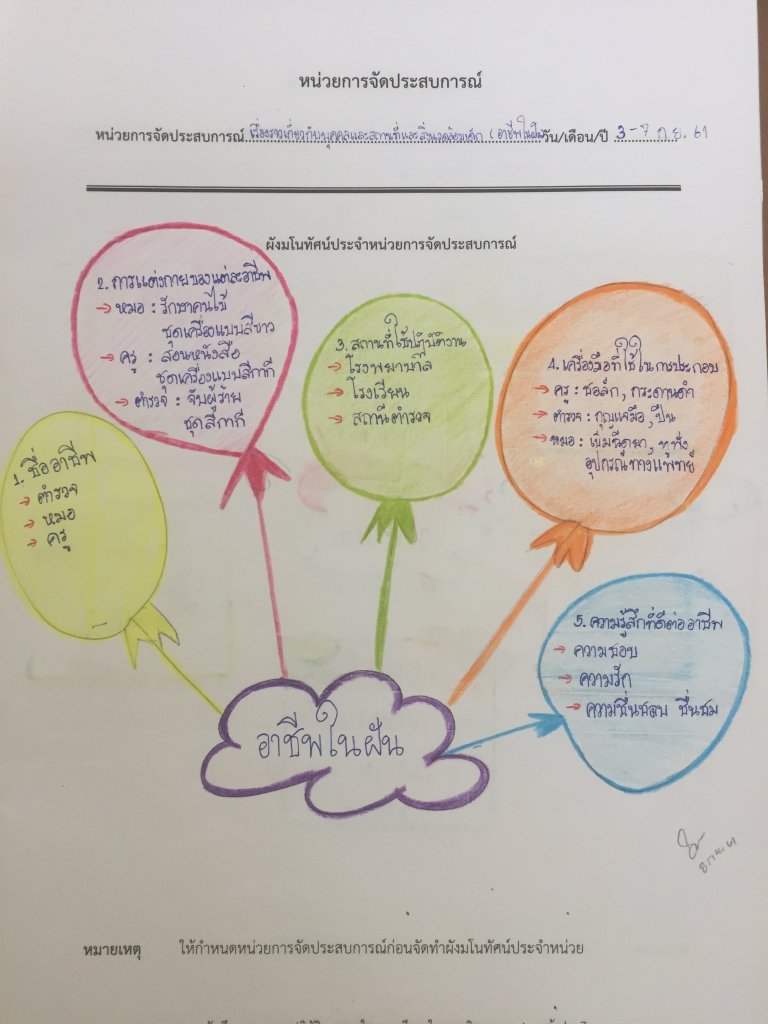 หน่วยการจัดประสบการณ์
หน่วยการจัดประสบการณ์ เรื่องราวเกี่ยวกับบุคคลและสถานที่และสิ่งแวดล้อมเด็ก (อาชีพในฝัน วัน/เดือน/ปี 3-7 ก.ย. 61
ผังมโนทัศน์ประจำหน่วยการจัดประสบการณ์
1. ชื่ออาชีพ
→ ตำรวจ
→ หมอ
→ ครู
2. การแต่งกายของแต่ละอาชีพ
→ หมอ : รักษาคนไข้
ชุดเครื่องแบบสีขาว
→ ครู : สอนหนังสือ
ชุดเครื่องแบบสีกากี
→ ตำรวจ : จับผู้ร้าย
ชุดสีกากี
3. สถานที่ใช้ปฏิบัติงาน
→ โรงพยาบาล
→ โรงเรียน
→ สถานีตำรวจ
4. เครื่องมือที่ใช้ในการประกอบ
→ ครู : ชอล์ก, กระดานดำ
→ ตำรวจ : กุญแจมือ, ปืน
→ หมอ : เข็มฉีดยา, หูฟัง
อุปกรณ์ทางแพทย์
5. ความรู้สึกที่ดีต่ออาชีพ
→ ความชอบ
→ ความรัก
→ ความชื่นชอบ ชื่นชม
อาชีพในฝัน
หมายเหตุ ให้กำหนดหน่วยการจัดประสบการณ์ก่อนจัดทำผังมโนทัศน์ประจำหน่วย